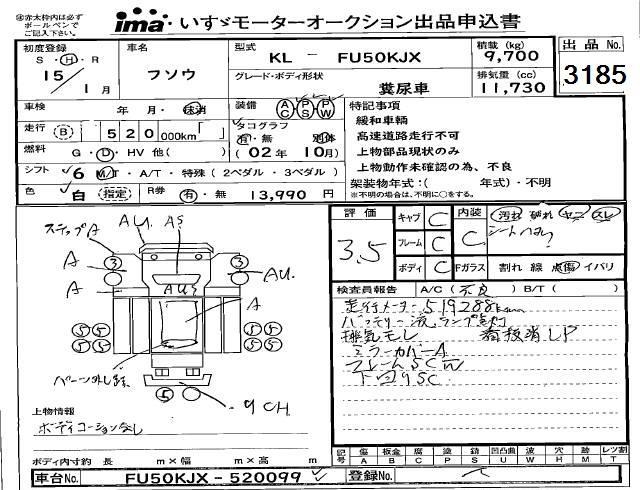 ㊟赤太枠内は必ず
ボールペンで
ご記入下さい。
ima いすゞモーターオークション出品申込書
初度登録
S・H・R
15/1月
車名
フソウ
型式
KL - FU50KJX
グレード・ボディ形状
糞尿車
積載 (kg)
9,700
排気量 (cc)
11,730
出品 No.
3185
車検
年 月・抹消
走行 (B) 520 000km「 」
燃料 G・D・HV 他( )
シフト 6 M/T・A/T・特殊 (2ペダル・3ペダル)
色 白 指定
R券 有・無 13,990 円
装備 AC PS PW
タコグラフ
有・無 別体
(02年 10月)
特記事項
緩和車輌
高速道路走行不可
上物部品現状のみ
上物動作未確認の為、不良
架装物年式:( 年式)・不明
※不明の場合は、不明に○をする。
ステップA
AU. AS
3 3
A
A
AU.
AUS
A
5 5 5 5
5 5 5 5
5
9CH
上物情報
ボディ内寸約 長 m×幅 m×高 m
評価
3.5
キャブ C
フレーム C
ボディ C
内装 C
Fガラス
汚れ 破れ ヤニ スレ
割れ 線 点傷 イバリ
検査員報告 A/C(不良) B/T( )
走行メーター519288km
バッテリー液ランプ点灯
排気モレ
ミラーカバーA
フレームSCW
下回りSC
記号 傷A 凹B 板金 腐C 塗P 錆S 凹凸曲U 波W 穴H 跡M レンズ割T
車台No. FU50KJX-520099
登録No.